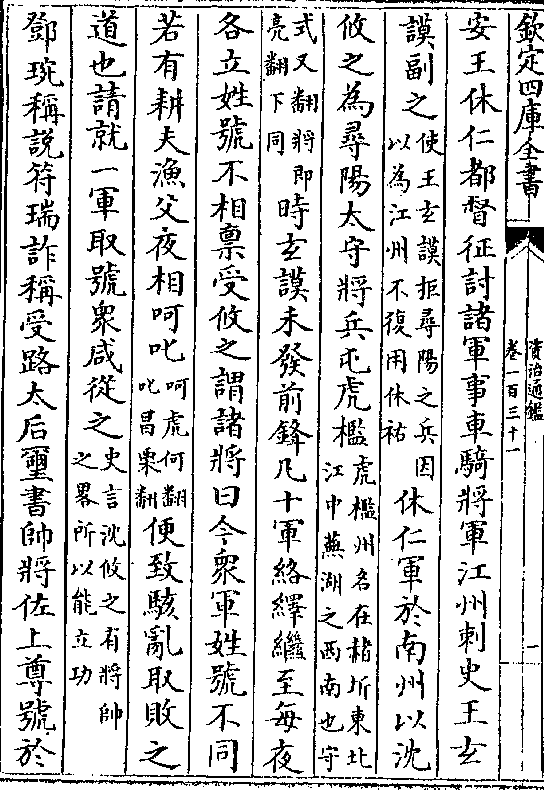 欽定四庫全書
資治通鑑
卷一百三十一
一
安王休仁都督征討諸軍事車騎將軍江州刺史王玄
謨副之使王玄謨拒尋陽之兵因以為江州不復用休祐休仁軍於南州以沈
攸之為尋陽太守將兵屯虎檻虎檻州名在赭圻東北江中蕪湖之西南也守
式又翻將即亮翻下同時玄謨未發前鋒凡十軍絡繹繼至每夜
各立姓號不相稟受攸之謂諸將曰今衆軍姓號不同
若有耕夫漁父夜相呵叱呵虎何翻叱昌栗翻便致駭亂取敗之
道也請就一軍取號衆咸從之史言沈攸之有將帥之畧所以能立功
鄧琬稱說符瑞詐稱受路太后璽書帥將佐上尊號於